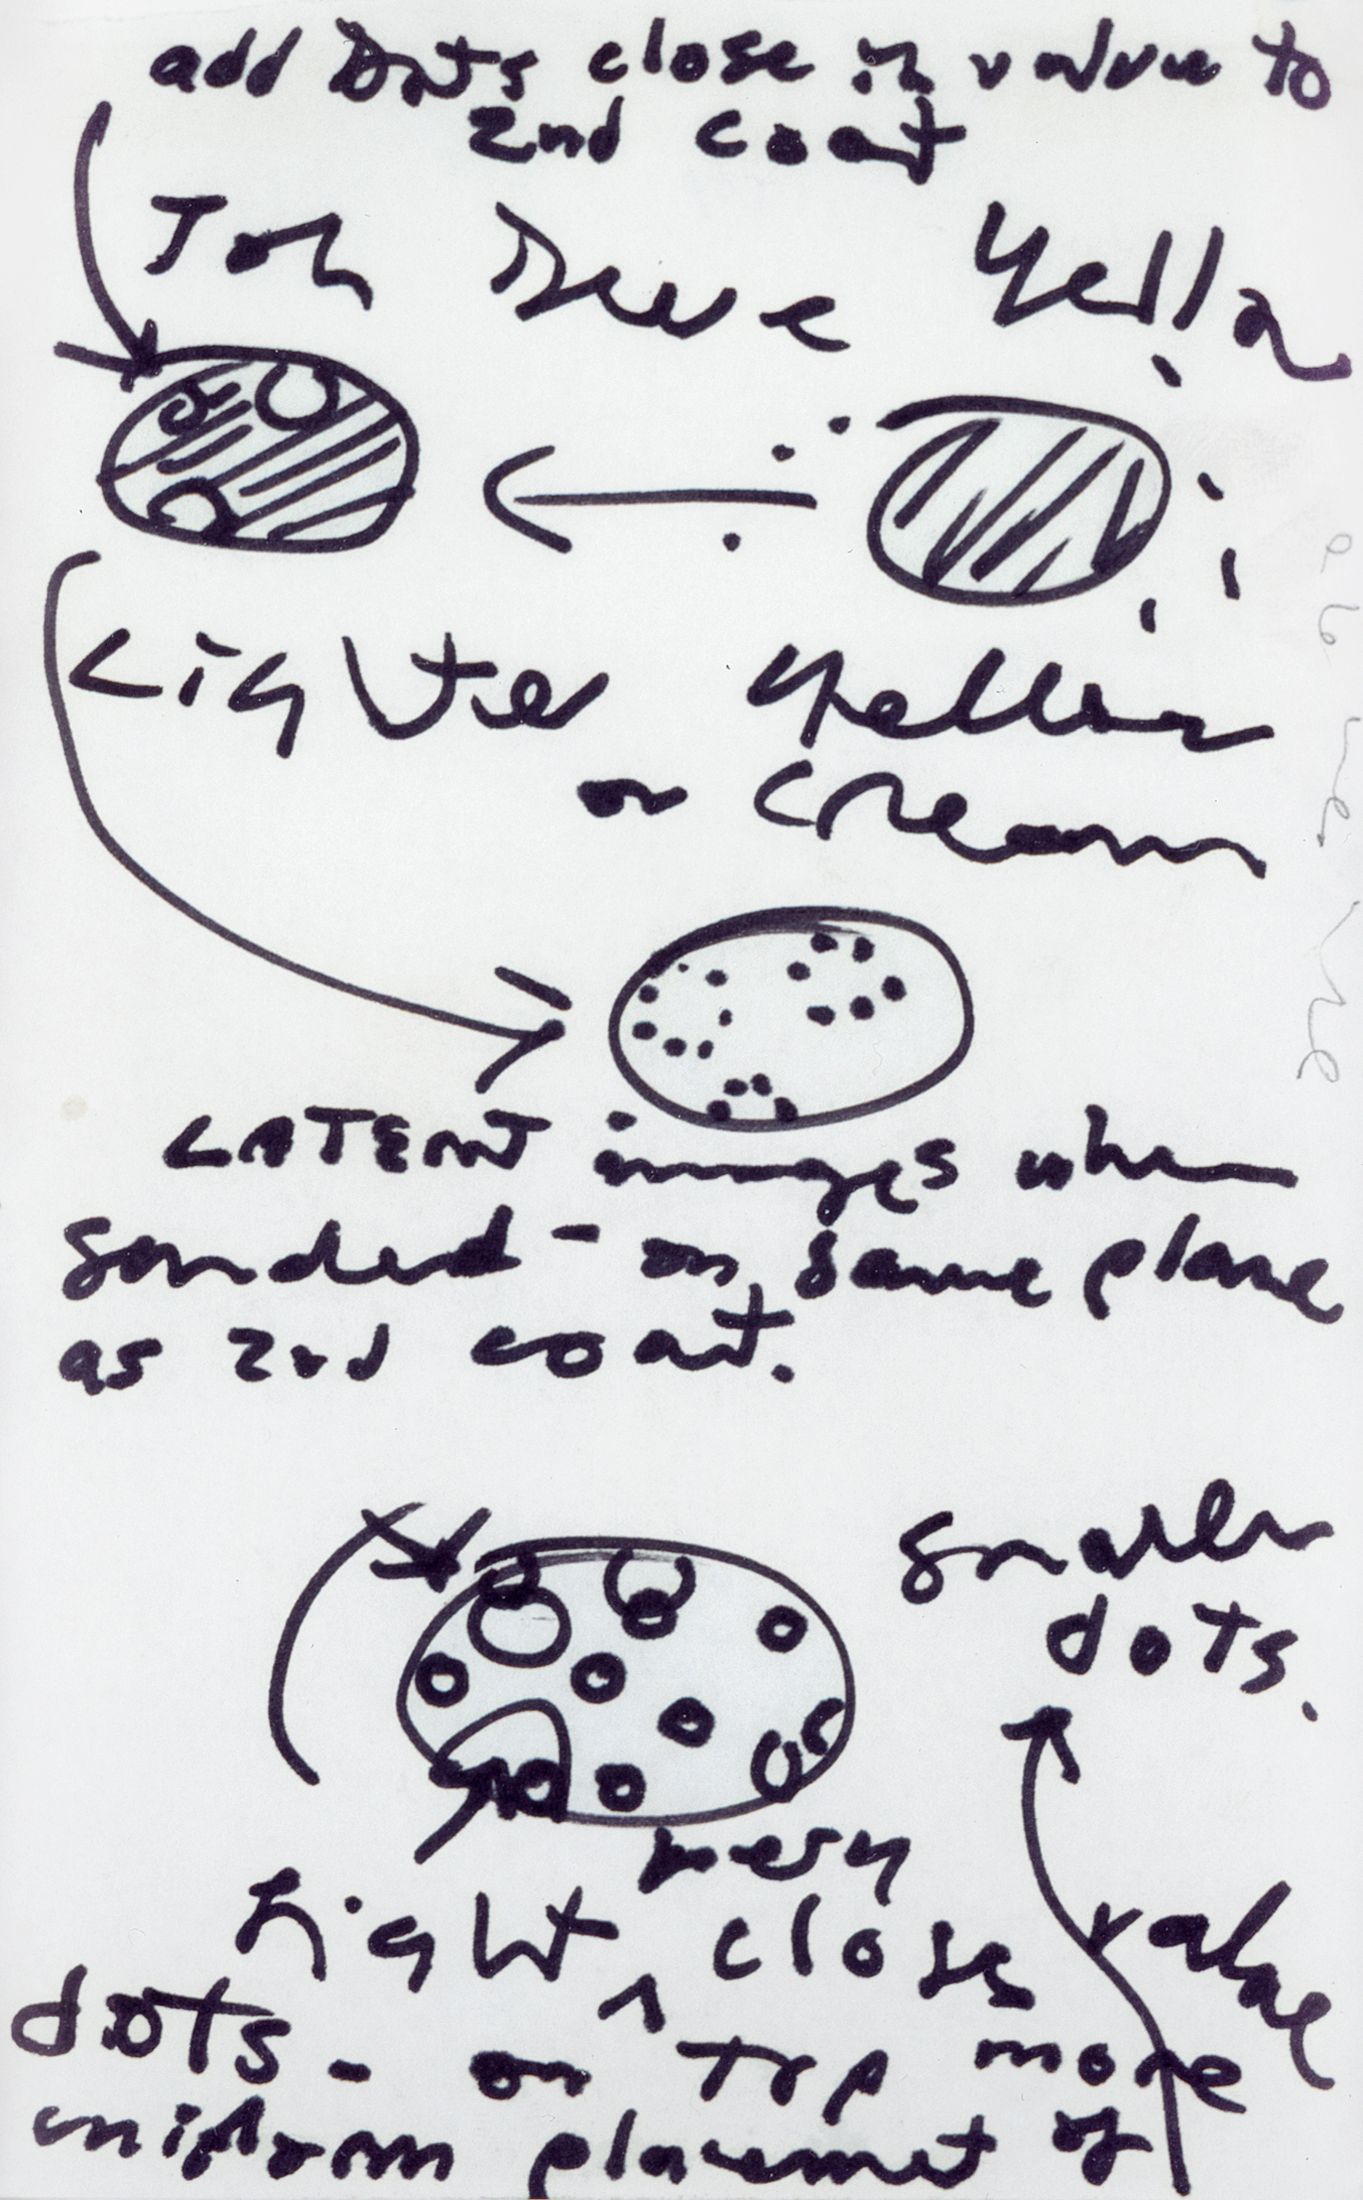 add Dots close in value to
2nd coat
Yella
Lighter Yellow
or Cream
LATENT images when
sanded - on same plane
as 2nd coat.
smaller
dots.
very
Light ^ close value
dots - on top more
uniform placement of